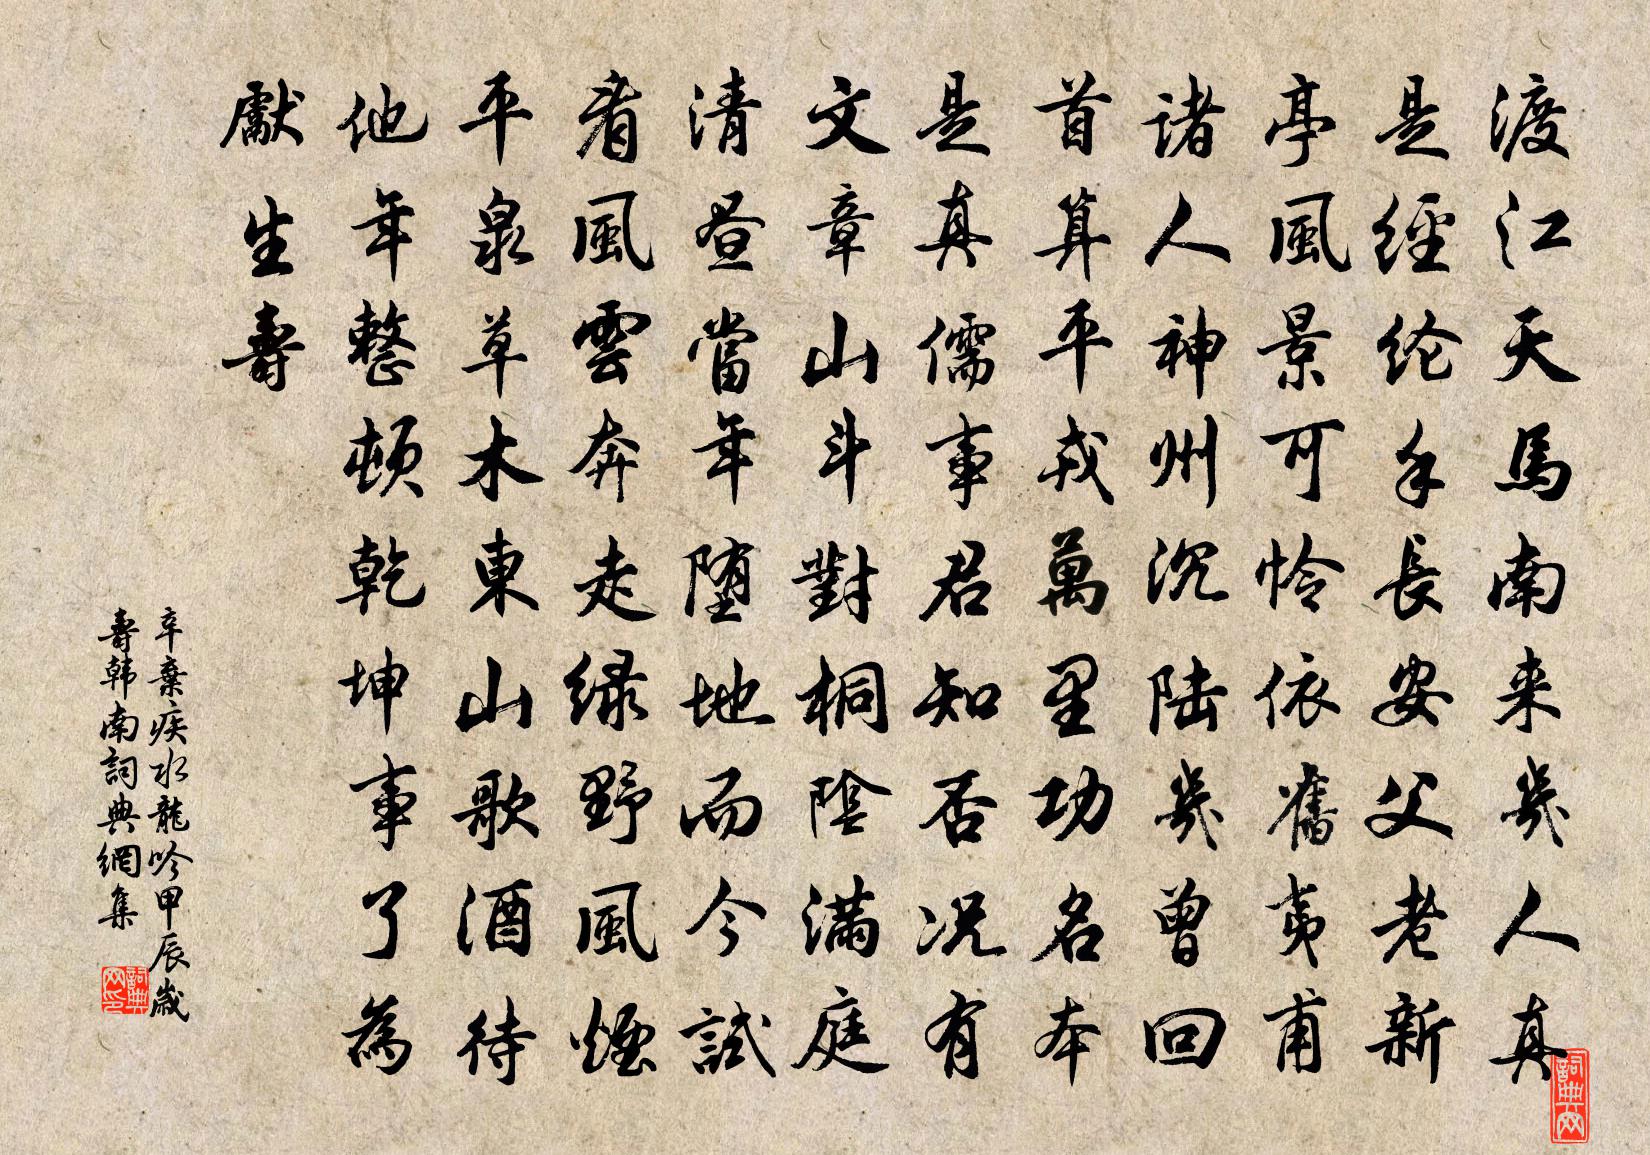 渡江天馬南来幾人真
是經纶手長安父老新
亭風景可怜依舊夷甫
诸人神州沉陆幾曾回
首算平戎萬里功名本
是真儒事君知否况有
文章山斗對桐陰滿庭
清昼當年堕地而今試
看風雲奔走绿野風煙
平泉草木東山歌酒待
他年整頓乾坤事了為
獻生壽
辛棄疾水龍吟甲辰歲
壽韩南詞典網集
詞典网
詞典网印